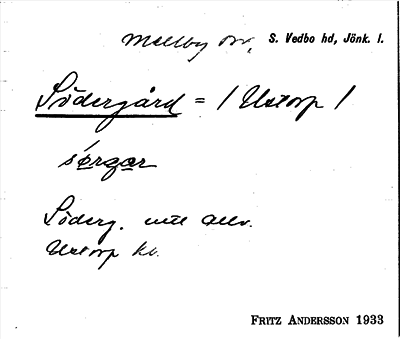 Mellby sn, S. Vedbo hd, Jönk. l.
Södergård = / Ustorp /
sørgar
Söderg. mtl allv.
Ustorp kv.
FRITZ ANDERSSON 1933